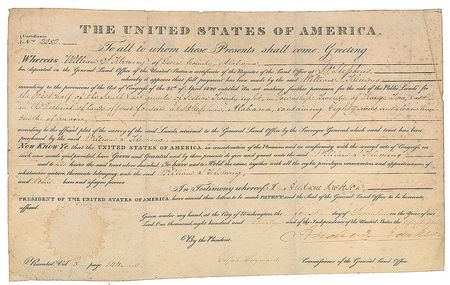 THE UNITED STATES OF AMERICA.
Certificate
No.
To all to whom these Presents shall come, Greeting
WHEREAS William S. Fleming of County, Alabama,
has deposited in the General Land Office of the United States a certificate of the Register of the Land Office at St Stephens
whereby it appears that full payment has been made by the said William S. Fleming
according to the provisions of the Act of Congress of the 24th of April 1820 entitled "An act making further provision for the sale of the Public Lands" for
half of the South East quarter of Section twenty eight, in Township twenty, of Range two, East,
in the District of lands offered for sale at St Stephens, Alabama, containing Eighty acres and
of an acre,
according to the official plat of the survey of the said Lands, returned to the General Land Office by the Surveyor General, which said tract has been
purchased by the said William S. Fleming
Now Know Ye, that the UNITED STATES OF AMERICA, in consideration of the Premises and in conformity with the several acts of Congress, in
such case made and provided, have Given and Granted and by these presents do give and grant unto the said William S. Fleming
and to his heirs the said tract above described: To Have and to Hold the same, together with all the rights, privileges, immunities, and appurtenances of
whatsoever nature thereunto belonging, unto the said William S. Fleming
and to his heirs and assigns forever.
In Testimony whereof I, Andrew Jackson
PRESIDENT OF THE UNITED STATES OF AMERICA, have caused these letters to be made PATENT, and the Seal of the General Land Office to be hereunto
affixed.
Given under my hand at the City of Washington, the day of in the year of our
Lord one thousand eight hundred and thirty and of the Independence of the United States the fifty
By the President. Andrew Jackson
Elijah Hayward Commissioner of the General Land Office.
Recorded Vol page